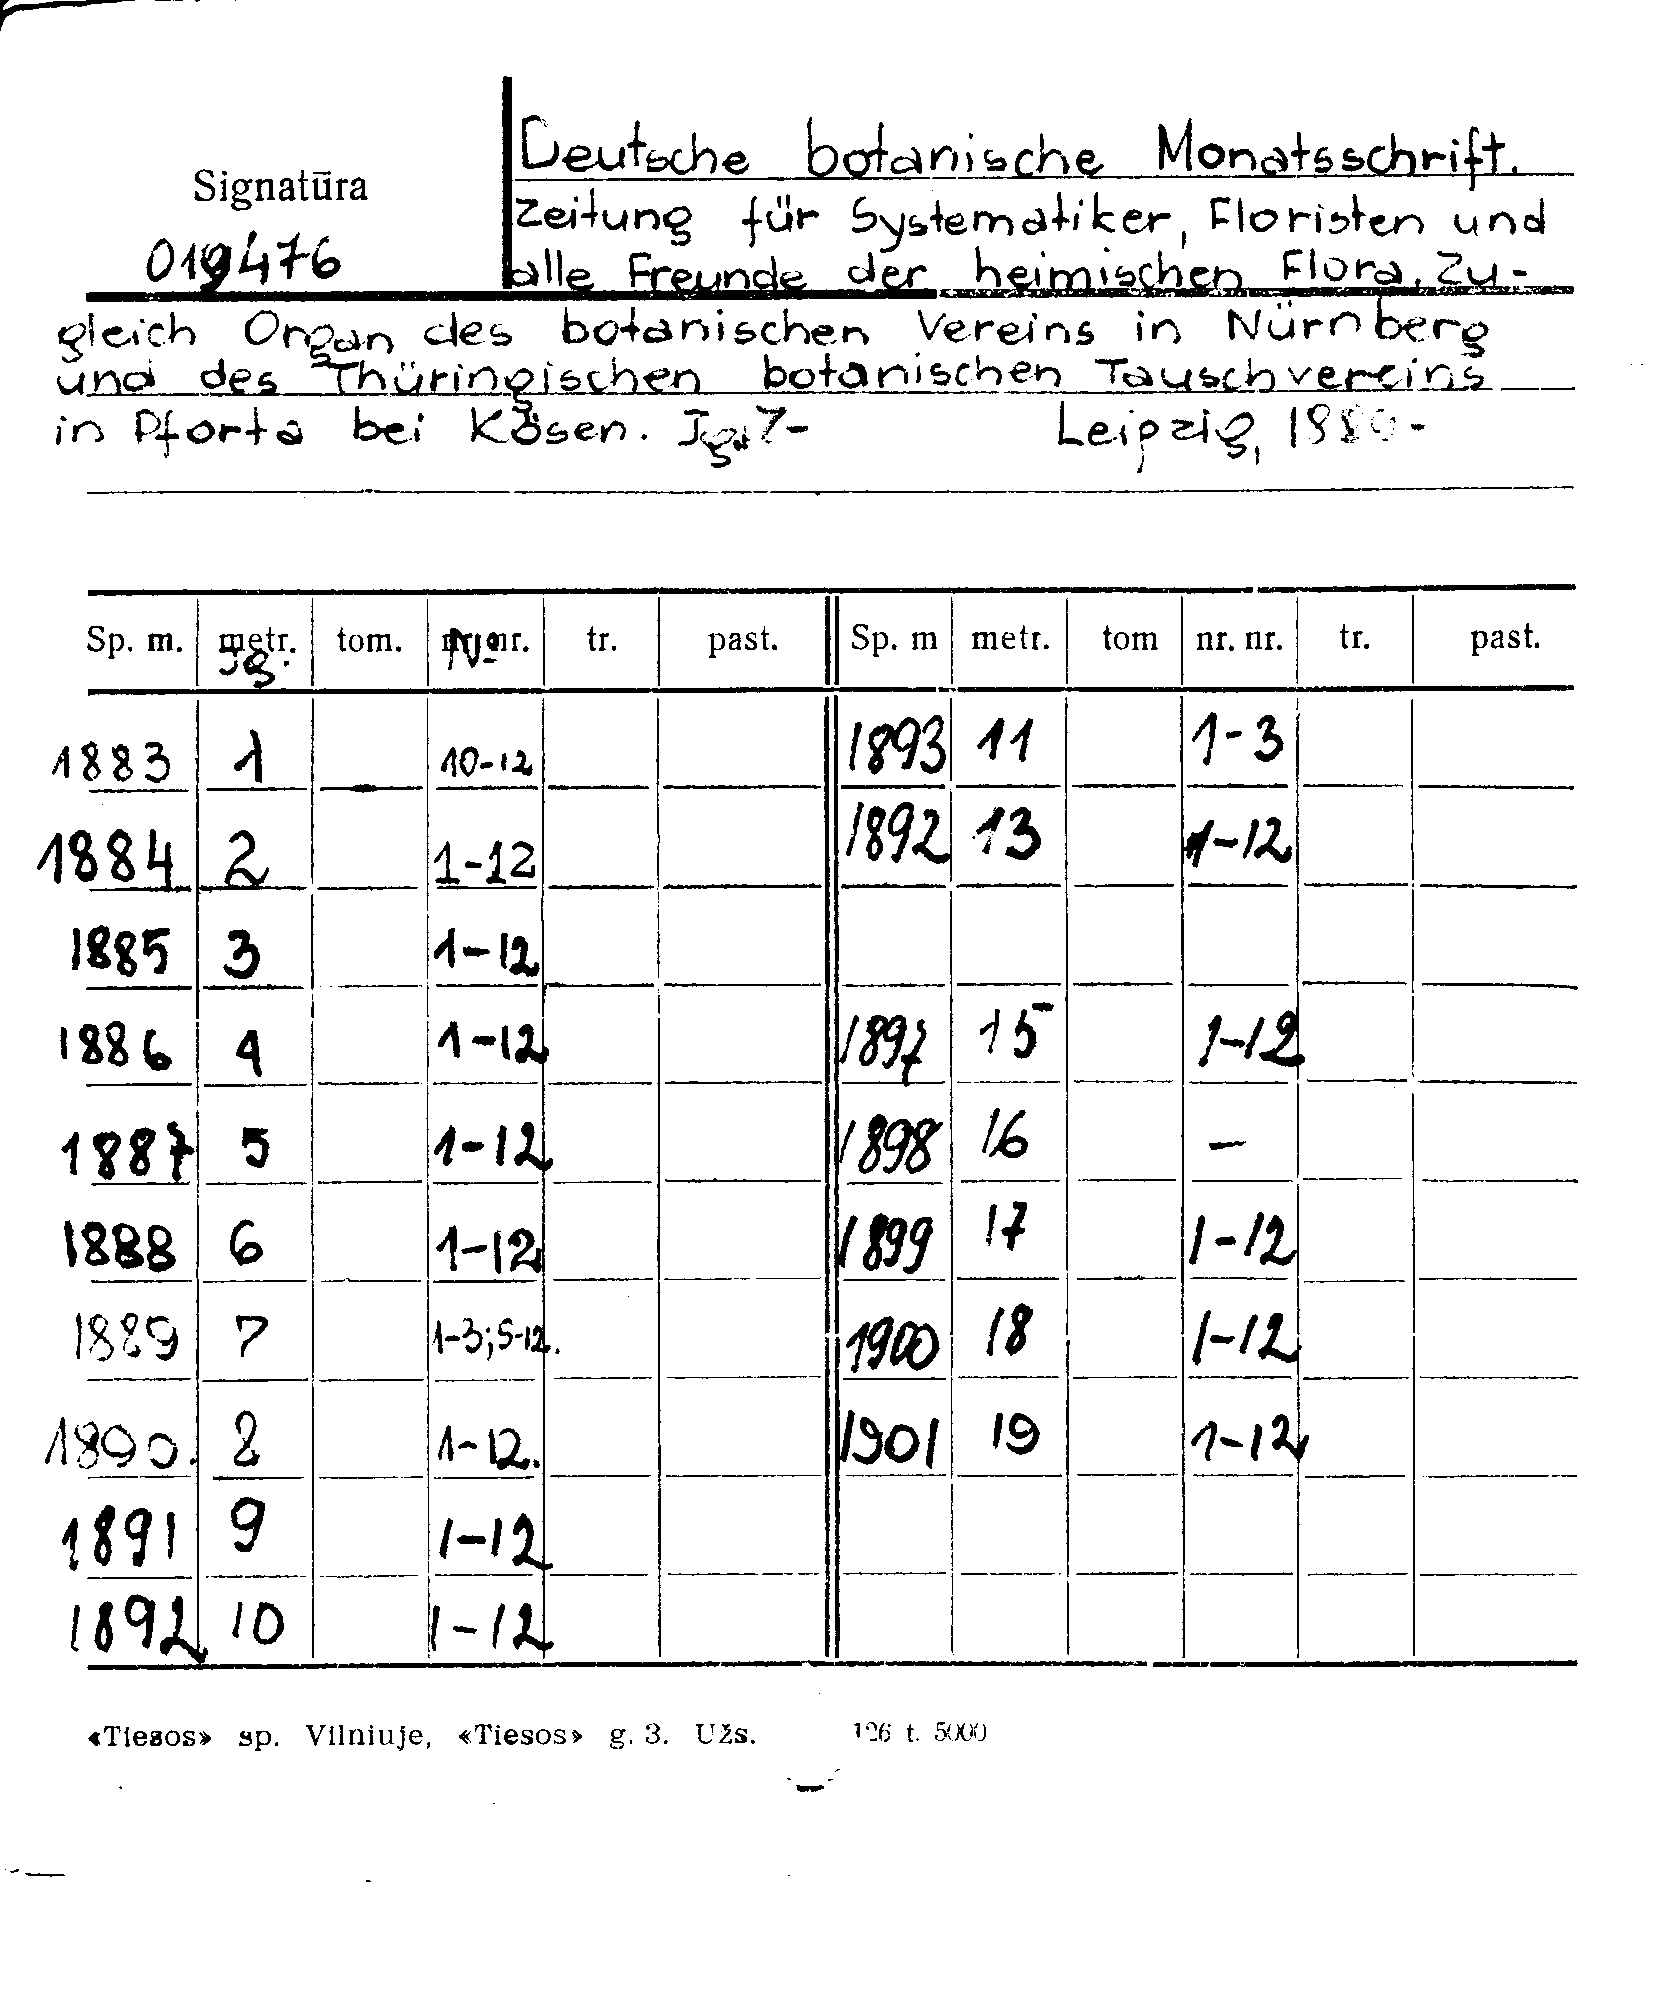 Signatūra
019476
Deutsche botanische Monatsschrift.
Zeitung für Systematiker, Floristen und
alle Freunde der heimischen Flora. Zu-
gleich Organ des botanischen Vereins in Nürnberg
und des Thüringischen botanischen Tauschvereins
in Pforta bei Kösen. Jg. 7- Leipzig,
Sp. m. metr. tom. nr. nr. tr. past. Sp. m metr. tom nr. nr. tr. past.
Jg. №
1883 1 10-12 1893 11 1-3
1884 2 1-12 1892 13 1-12
1885 3 1-12
1886 4 1-12 1897 15 1-12
1887 5 1-12 1898 16 –
1888 6 1-12 1899 17 1-12
1889 7 1-3; 5-12. 1900 18 1-12
1890. 8 1-12. 1901 19 1-12
1891 9 1-12
1892 10 1-12
«Tiesos» sp. Vilniuje, «Tiesos» g. 3. Užs. 126 t. 5000